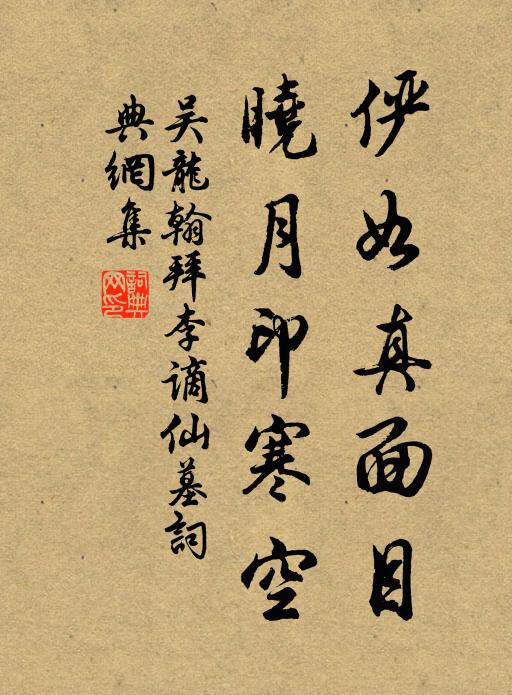 儼如真面目
曉月印寒空
吴龍翰拜李謫仙墓詞
典網集
詞典網印